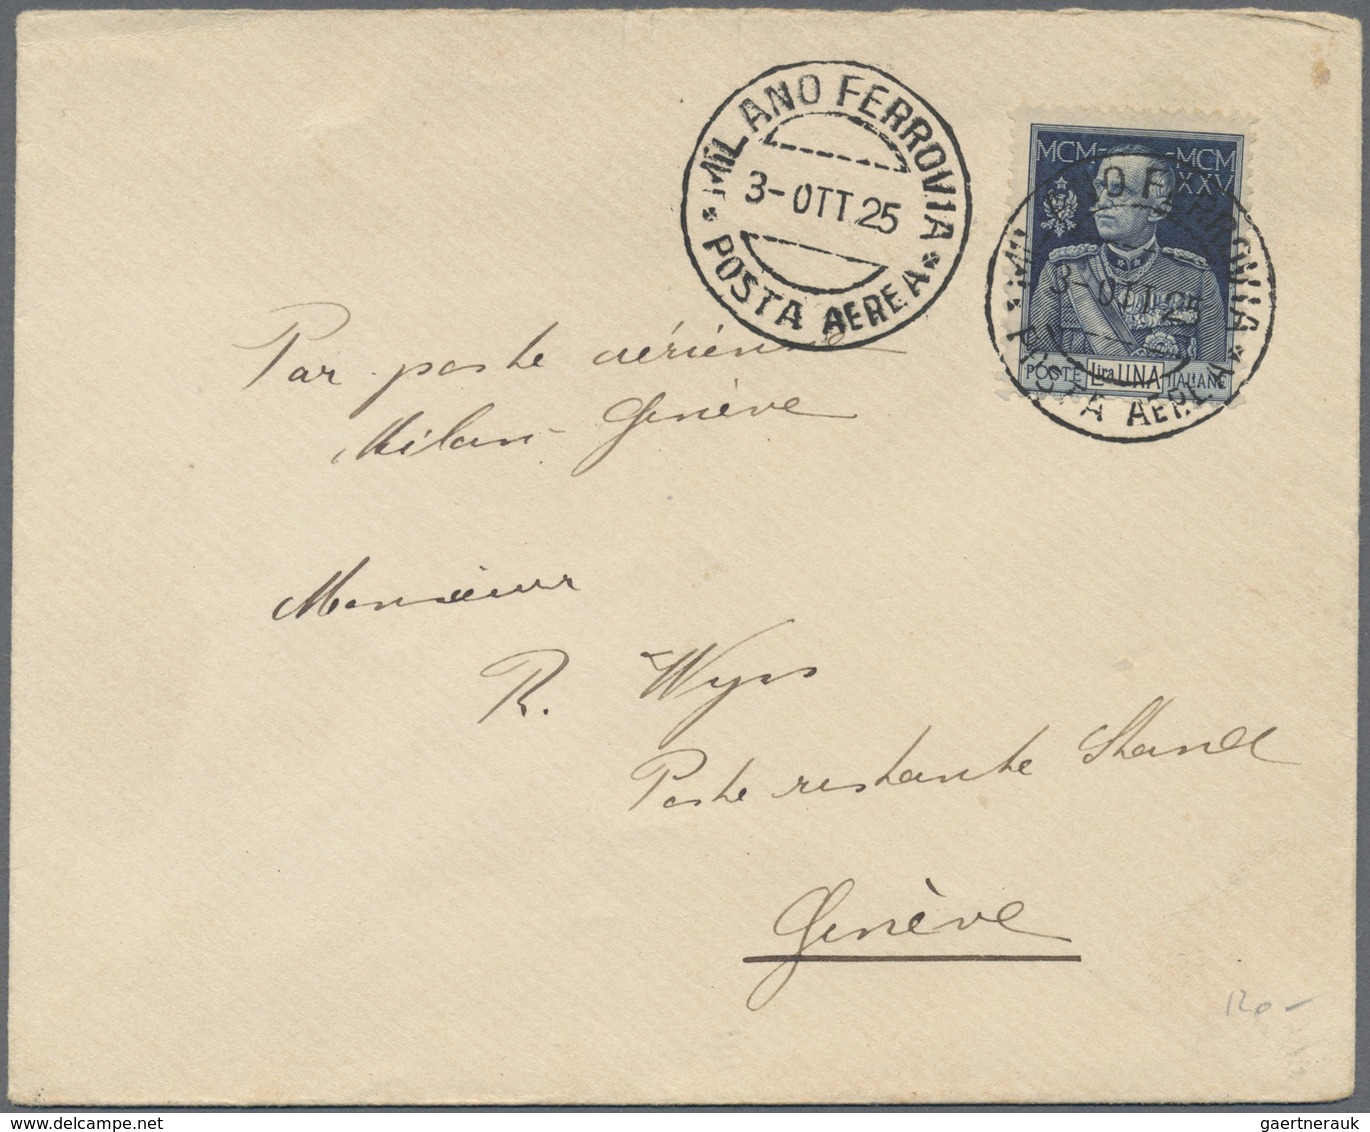 MILANO FERROVIA
3-OTT.25
* POSTA AEREA *
MCM MCM
XXV
MILANO FERROVIA
3-OTT.25
* POSTA AEREA *
POSTE Lira UNA ITALIANE
Par poste aérienne
Milan-Genève
Monsieur
R. Wyss
Poste restante Stand
Genève
120-
gaertnerauk